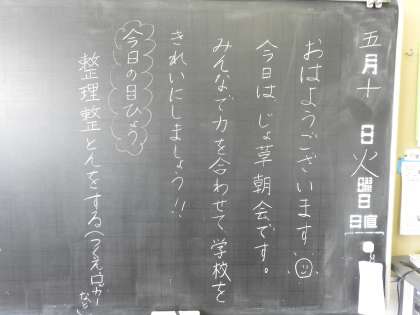 五月十日火曜日
日直
おはようございます
今日は じょ草 朝会です。
みんなで力を合わせて 学校を
きれいにしましょう!!
今日の目ひょう
整理整とんをする(つくえ、ロッカーなど)